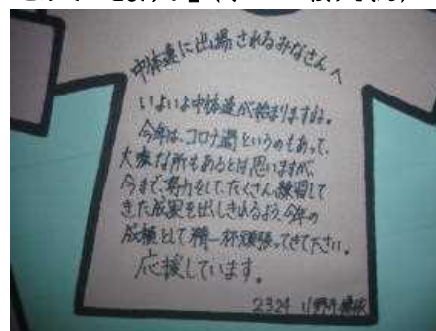 中体連に出場されるみなさんへ
いよいよ中体連が始まりますね。
今年は、コロナ禍というのもあって、
大変な所もあるとは思いますが、
今まで努力をして、たくさん練習して
きた成果を出しきれるよう、今年の
成権として精一杯頑張ってきて下さい。
応援しています。
2324